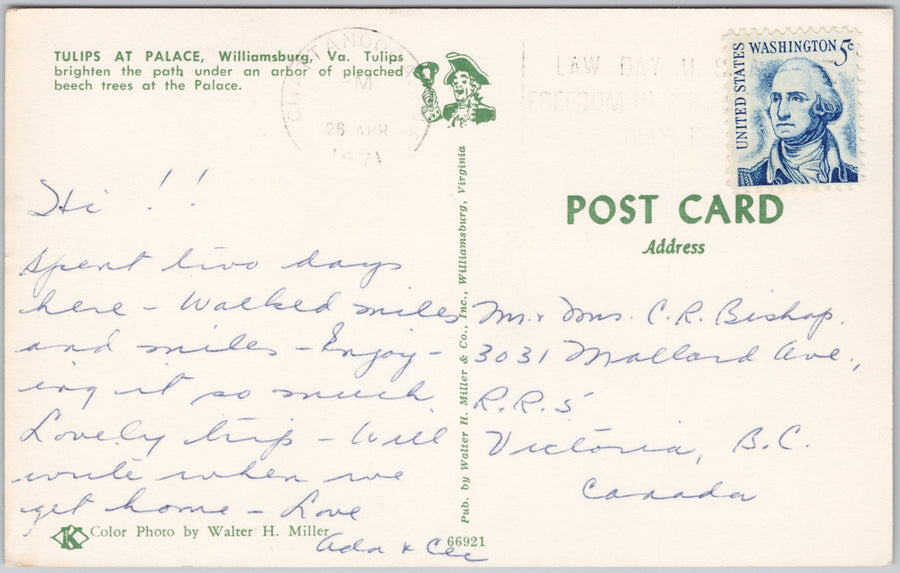 TULIPS AT PALACE, Williamsburg, Va. Tulips
brighten the path under an arbor of pleached
beech trees at the Palace.
26 APR
LAW DAY U.
FREEDOM
MAY 1
UNITED STATES
WASHINGTON 5c
POST CARD
Address
Hi !!
Spent two days
here - Walked miles
and miles - Enjoy-
ing it so much
Lovely trip - Will
write when we
get home - Love
Ada & Cec
Mr. & Mrs. C.R. Bishop.
3031 Mallard Ave.,
R.R.5
Victoria, B.C.
Canada
Pub. by Walter H. Miller & Co., Inc., Williamsburg, Virginia
K Color Photo by Walter H. Miller
66921